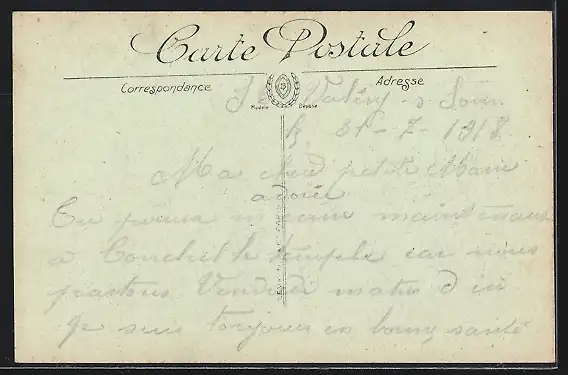 Carte Postale
Correspondance
Adresse
Modèle Déposé
St Valéry-s-Som
le 31-7-1918
Ma cherd petite Marie
adorée
Tu pourra m'écrire maintenant
a Conchil le temple car nous
partons Vendredi matin d'ici
Je suis toujours en bonne santé